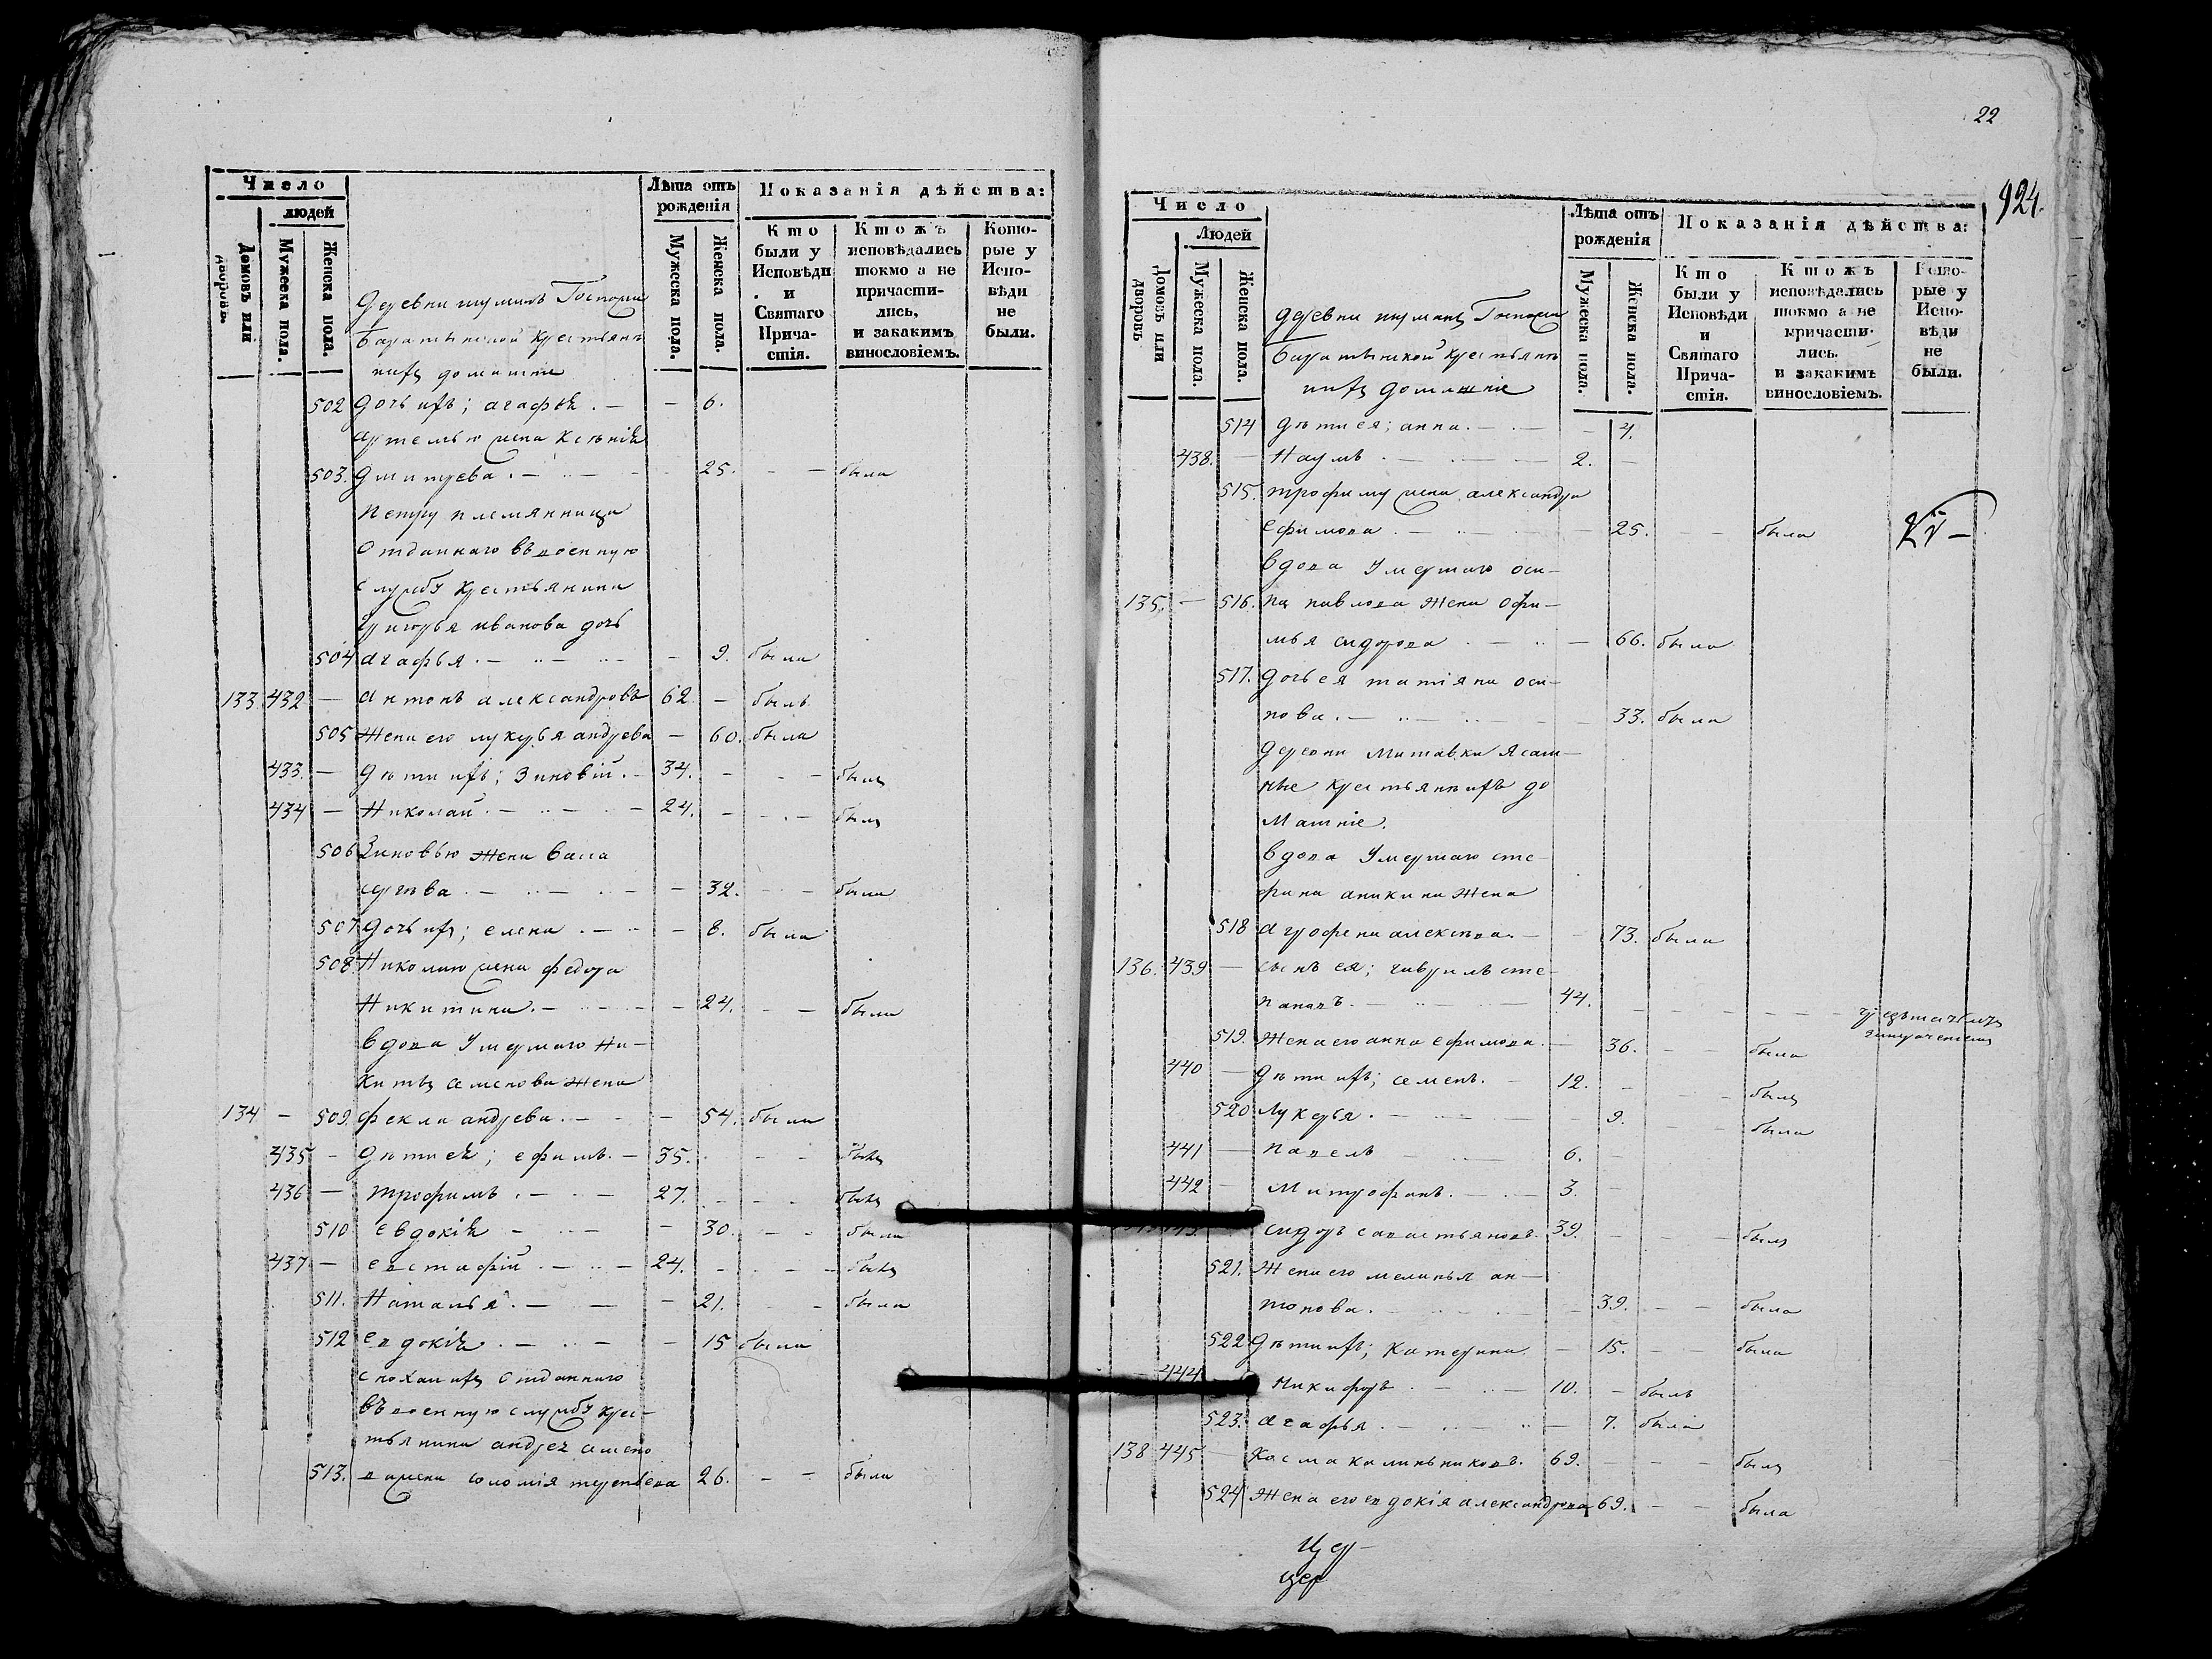 Число
людей
Домовъ или дворовъ.
Мужеска пола.
Женска пола.
Лѣта отъ рожденія
Мужска пола.
Женска пола.
Показанія дѣйства:
Кто были у Исповѣди и Святаго Причастія.
Ктожъ исповѣдались токмо а не причастились, и закакимъ винословіемъ.
Которые у Исповѣди не были.
деревни Господи
крестьянѣ
ихъ домашни
502 дочь ихъ; агафья. — — 6.
Артемью жена Ксѣнія
503. дмитрева. — — 25. — — была
петру племянница
отданнаго въ военную
службу крестьянина
григорья иванова дочь
504 агафья. — — 9. была
133. 432 — антонъ александровъ 62. — былъ
505 жена его лукерья андрева — 60. была
433. — дѣти ихъ; зиновій. — 34. — — — былъ
434 — Николай. — 24. — — — былъ
506 Зиновью жена васса
сергѣва. — — 32. — — была
507 дочь ихъ; елена. — — 8. была
508. Николаю жена федора
Никитина. — — 24. — — была
вдова умершаго Ни-
киты семенова жена
134 — 509. фекла андрева. — — 54. была
435 — дѣти ея; ефимъ. — 35. — — былъ
436 — трофимъ. — 27. — — — былъ
510 евдокія — — 30. — — была
437 — евстафій. — 24. — — — былъ
511. Наталья. — — 21. — — была
512 евдокія. — — 15 была
снохаи ихъ отданнаго
въ военную службу крес-
тьянина андрея семено
513. ва жена соломія терентьева 26. — — была
22
924.
Число
Людей
Домовъ или дворовъ
Мужеска пола.
Женска пола.
Лѣта отъ рожденія
Мужеска пола.
Женска пола.
Показанія дѣйства:
Кто были у Исповѣди и Святаго Причастія.
Ктожъ исповѣдались токмо а не причастились. и закакимъ винословіемъ.
Которые у Исповѣди не были.
деревни Господи
крестьянѣ
ихъ домашніе
514 дѣти ея; анна. — — 4.
438. — Наумъ. — 2. —
515. трофиму жена александра
ефимова. — — 25. — — была
вдова умершаго оси-
135. — 516. па павлова жена офи-
мья сидорова — — 66. была
517. дочь ея татіяна оси-
пова. — — 33. была
деревни Митавки ясаш-
ные крестьянѣ ихъ до
машніе.
вдова умершаго сте-
фана аникина жена
518 агрофена алексѣва. — — 73. была
136. 439 — сынъ ея; гаврилъ сте-
пановъ. — 44. — — — — — —
519. жена его анна ефимова. — 36. — — была
440 — дѣти ихъ; семенъ. — 12. — — — былъ
520 лукерья. — — 9. — — была
441 — павелъ — 6. —
442 — митрофанъ. — 3. —
сидоръ савастьяновъ. 39. — — — былъ
521. жена его меланья ан-
тонова. — — 39. — — была
522 дѣти ихъ; катерина. — 15. — — была
444 никифоръ. — 10. — былъ
523. агафья. — — 7. была
138 445 — Косма калинъниковъ. 69. — — — былъ
524 жена его евдокія александрова 69. — — была
Цер-
цер